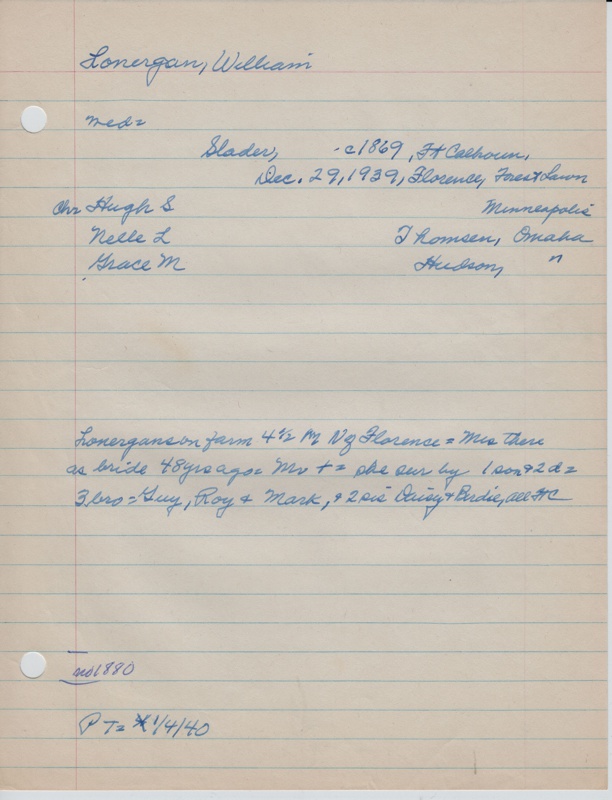 Lonergan, William
med=
Slader, -c1869, Ft Calhoun,
Dec. 29, 1939, Florence, Forest Lawn
Chr Hugh S Minneapolis
Nelle L Thomsen, Omaha
Grace M Hudson, "
Lonergans on farm 4 1/2 M N of Florence = Mrs there
as bride 48 yrs ago = Mr + = she sur by 1 son + 2 d =
3 bro = Guy, Roy + Mark, + 2 sis Daisy + Birdie, all Ft C
no 1880
PT= 1/4/40